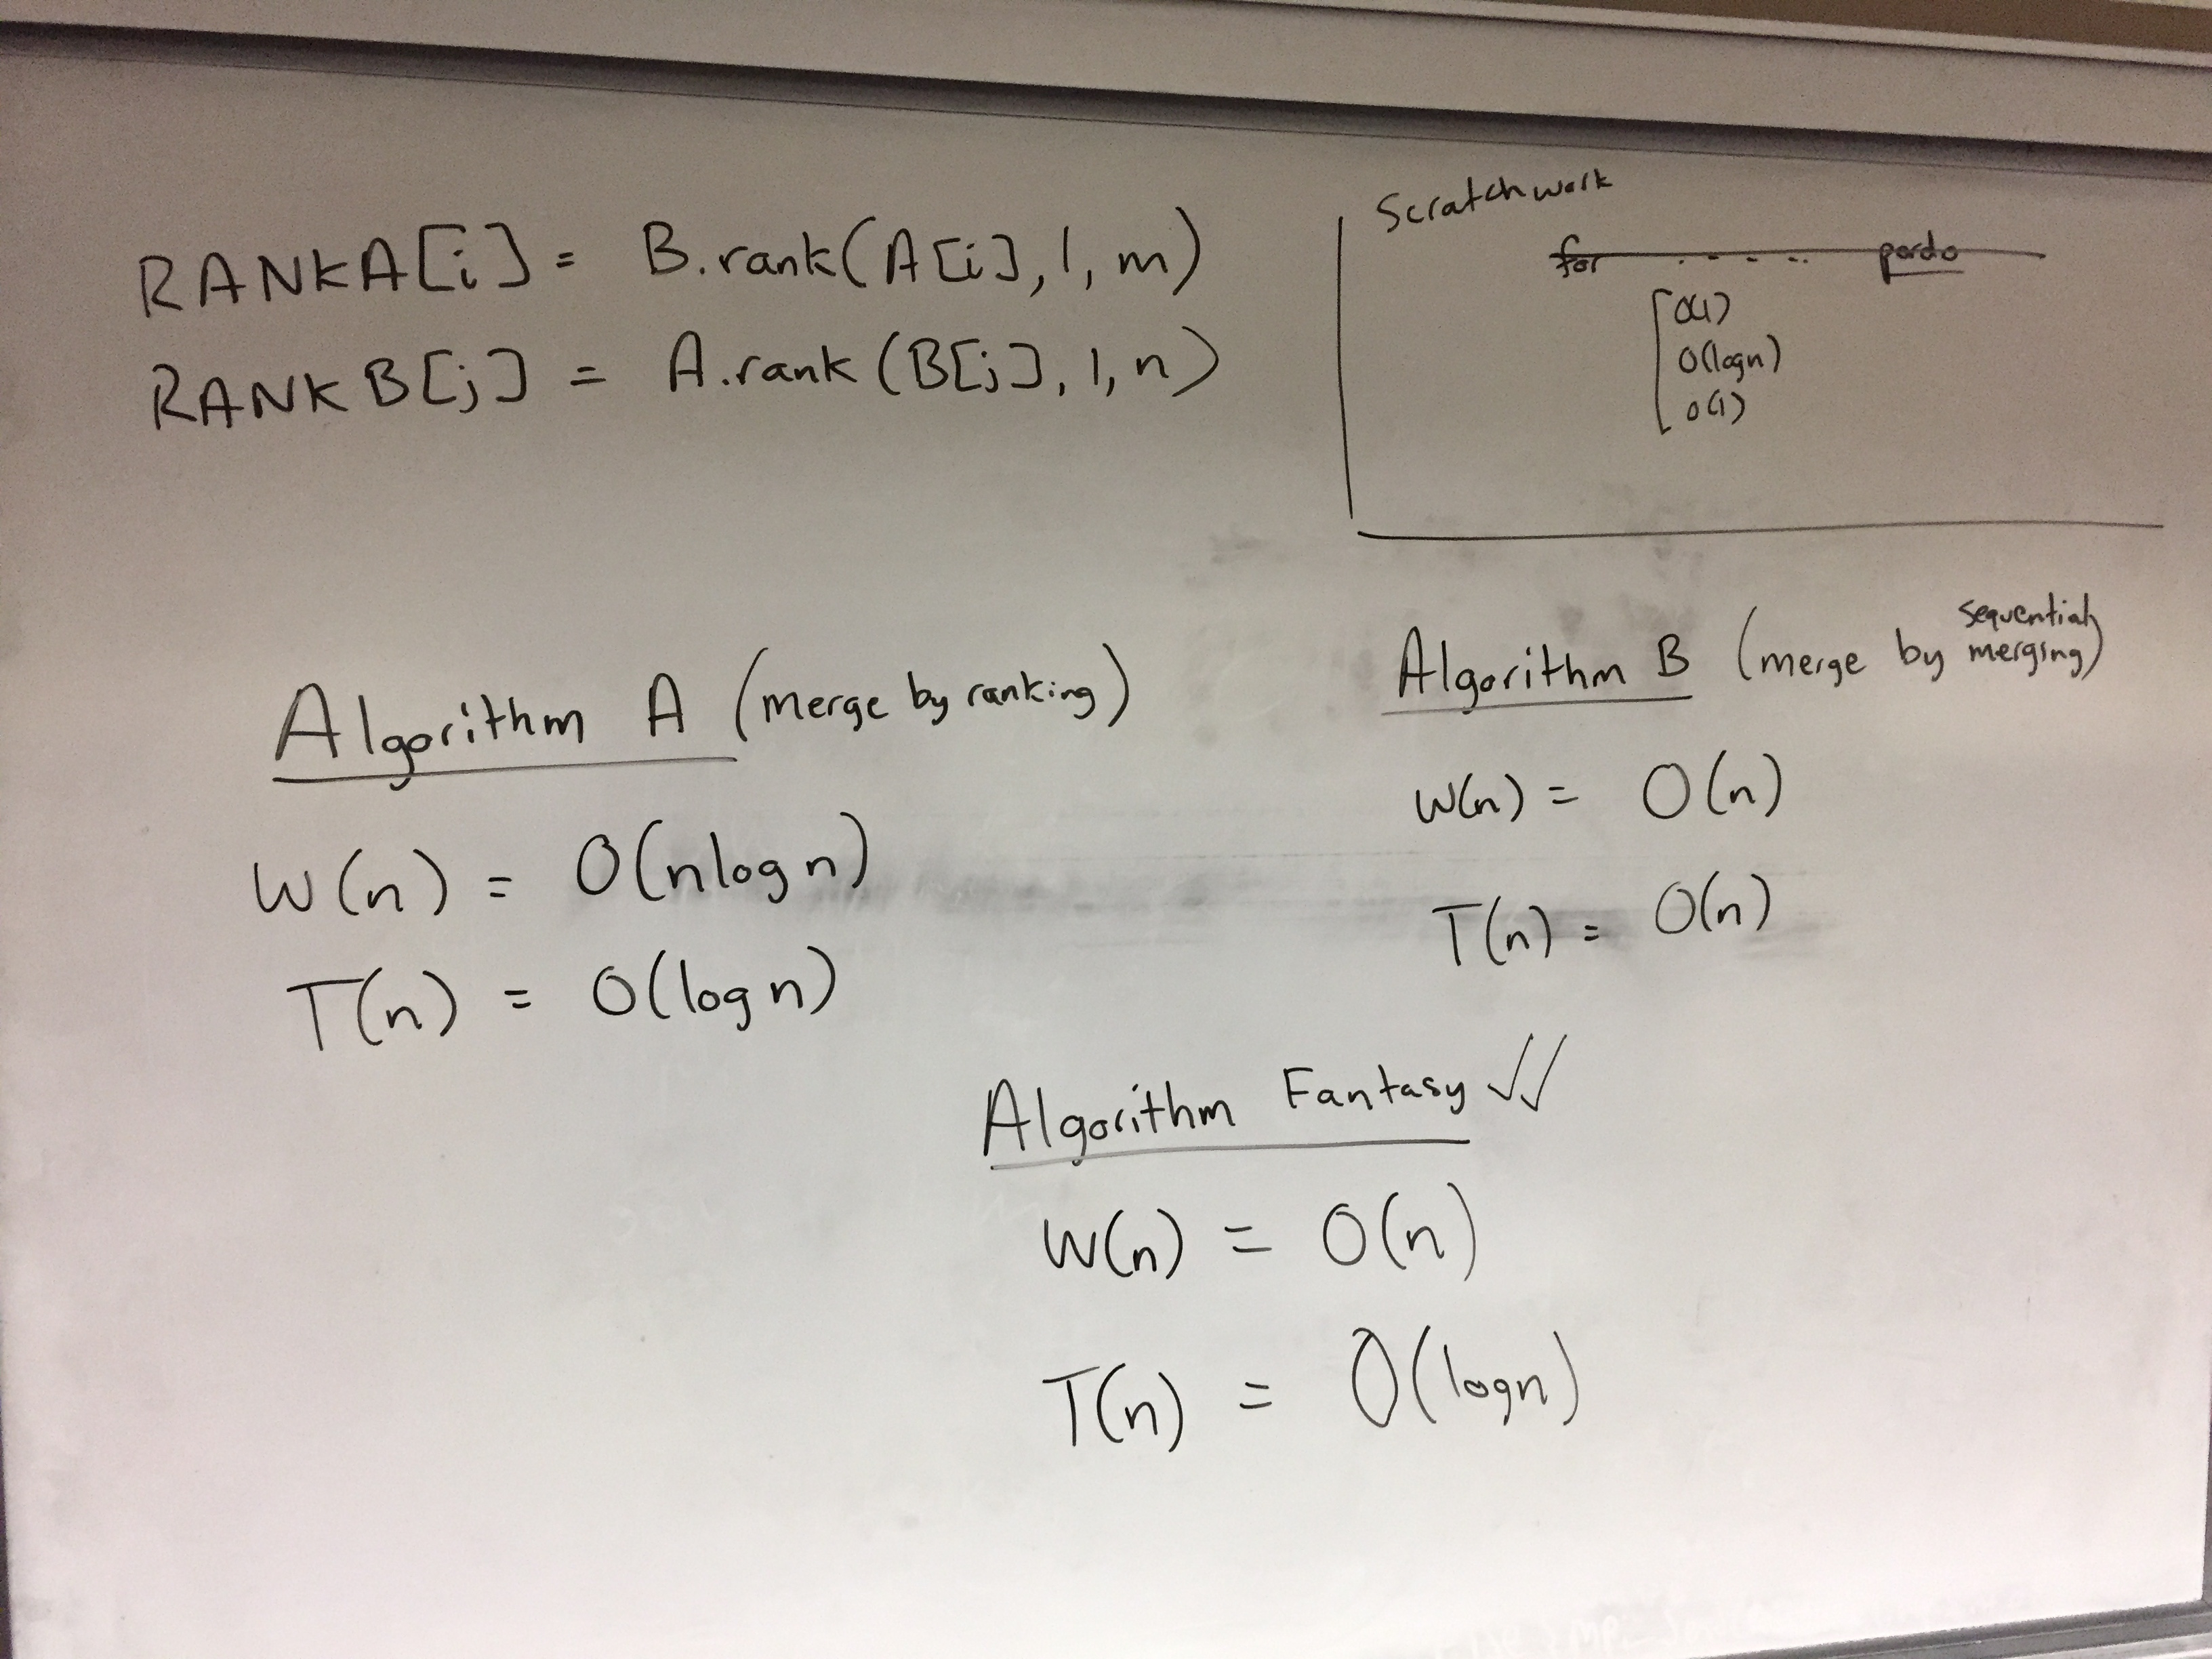 RANKA[i] = B.rank(A[i], 1, m)
RANKB[j] = A.rank(B[j], 1, n)
Scratchwork
for ..... pardo
O(1)
O(logn)
O(1)
Algorithm A (merge by ranking)
W(n) = O(nlogn)
T(n) = O(logn)
Algorithm B (merge by sequential merging)
W(n) = O(n)
T(n) = O(n)
Algorithm Fantasy ✓✓
W(n) = O(n)
T(n) = O(logn)